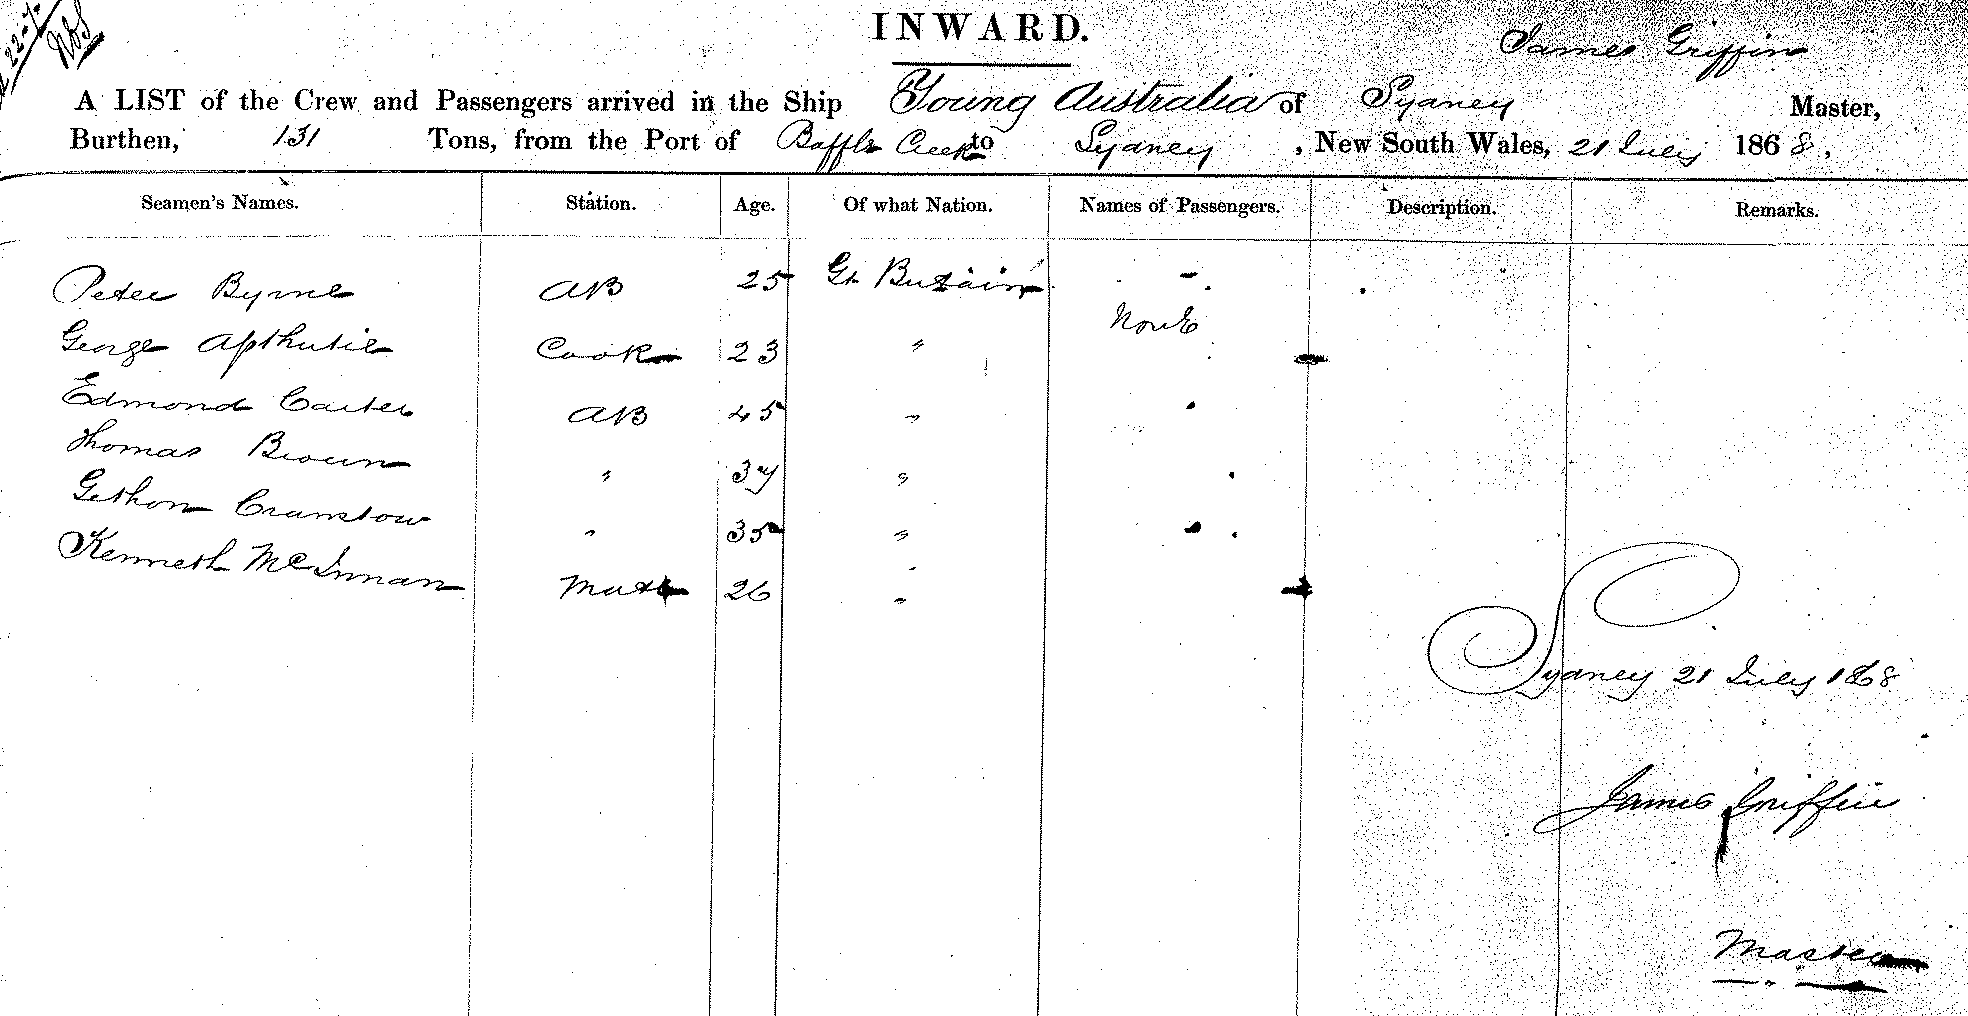 22-7
INWARD.
James Griffin
A LIST of the Crew and Passengers arrived in the Ship Young Australia of Sydney Master,
Burthen, 131 Tons, from the Port of Baffle Creek to Sydney, New South Wales, 21 July 1868,
Seamen's Names. Station. Age. Of what Nation. Names of Passengers. Description. Remarks.
Peter Byrne AB 25 Gt Britain -
None
George Cook 23 "
Edmond Carter AB 45 "
Thomas Brown " 37 "
Cranstow " 35 "
Kenneth McInman Mate 26 "
Sydney 21 July 1868
James Griffin
Master